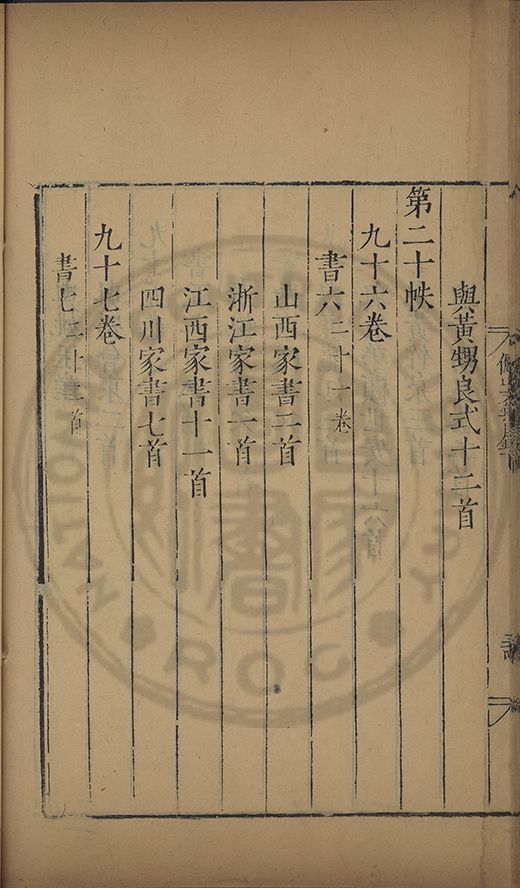 與黃甥良式十二首
第二十帙
九十六卷
書六二十一首
山西家書二首
浙江家書一首
江西家書十一首
四川家書七首
九十七卷
書七二十首